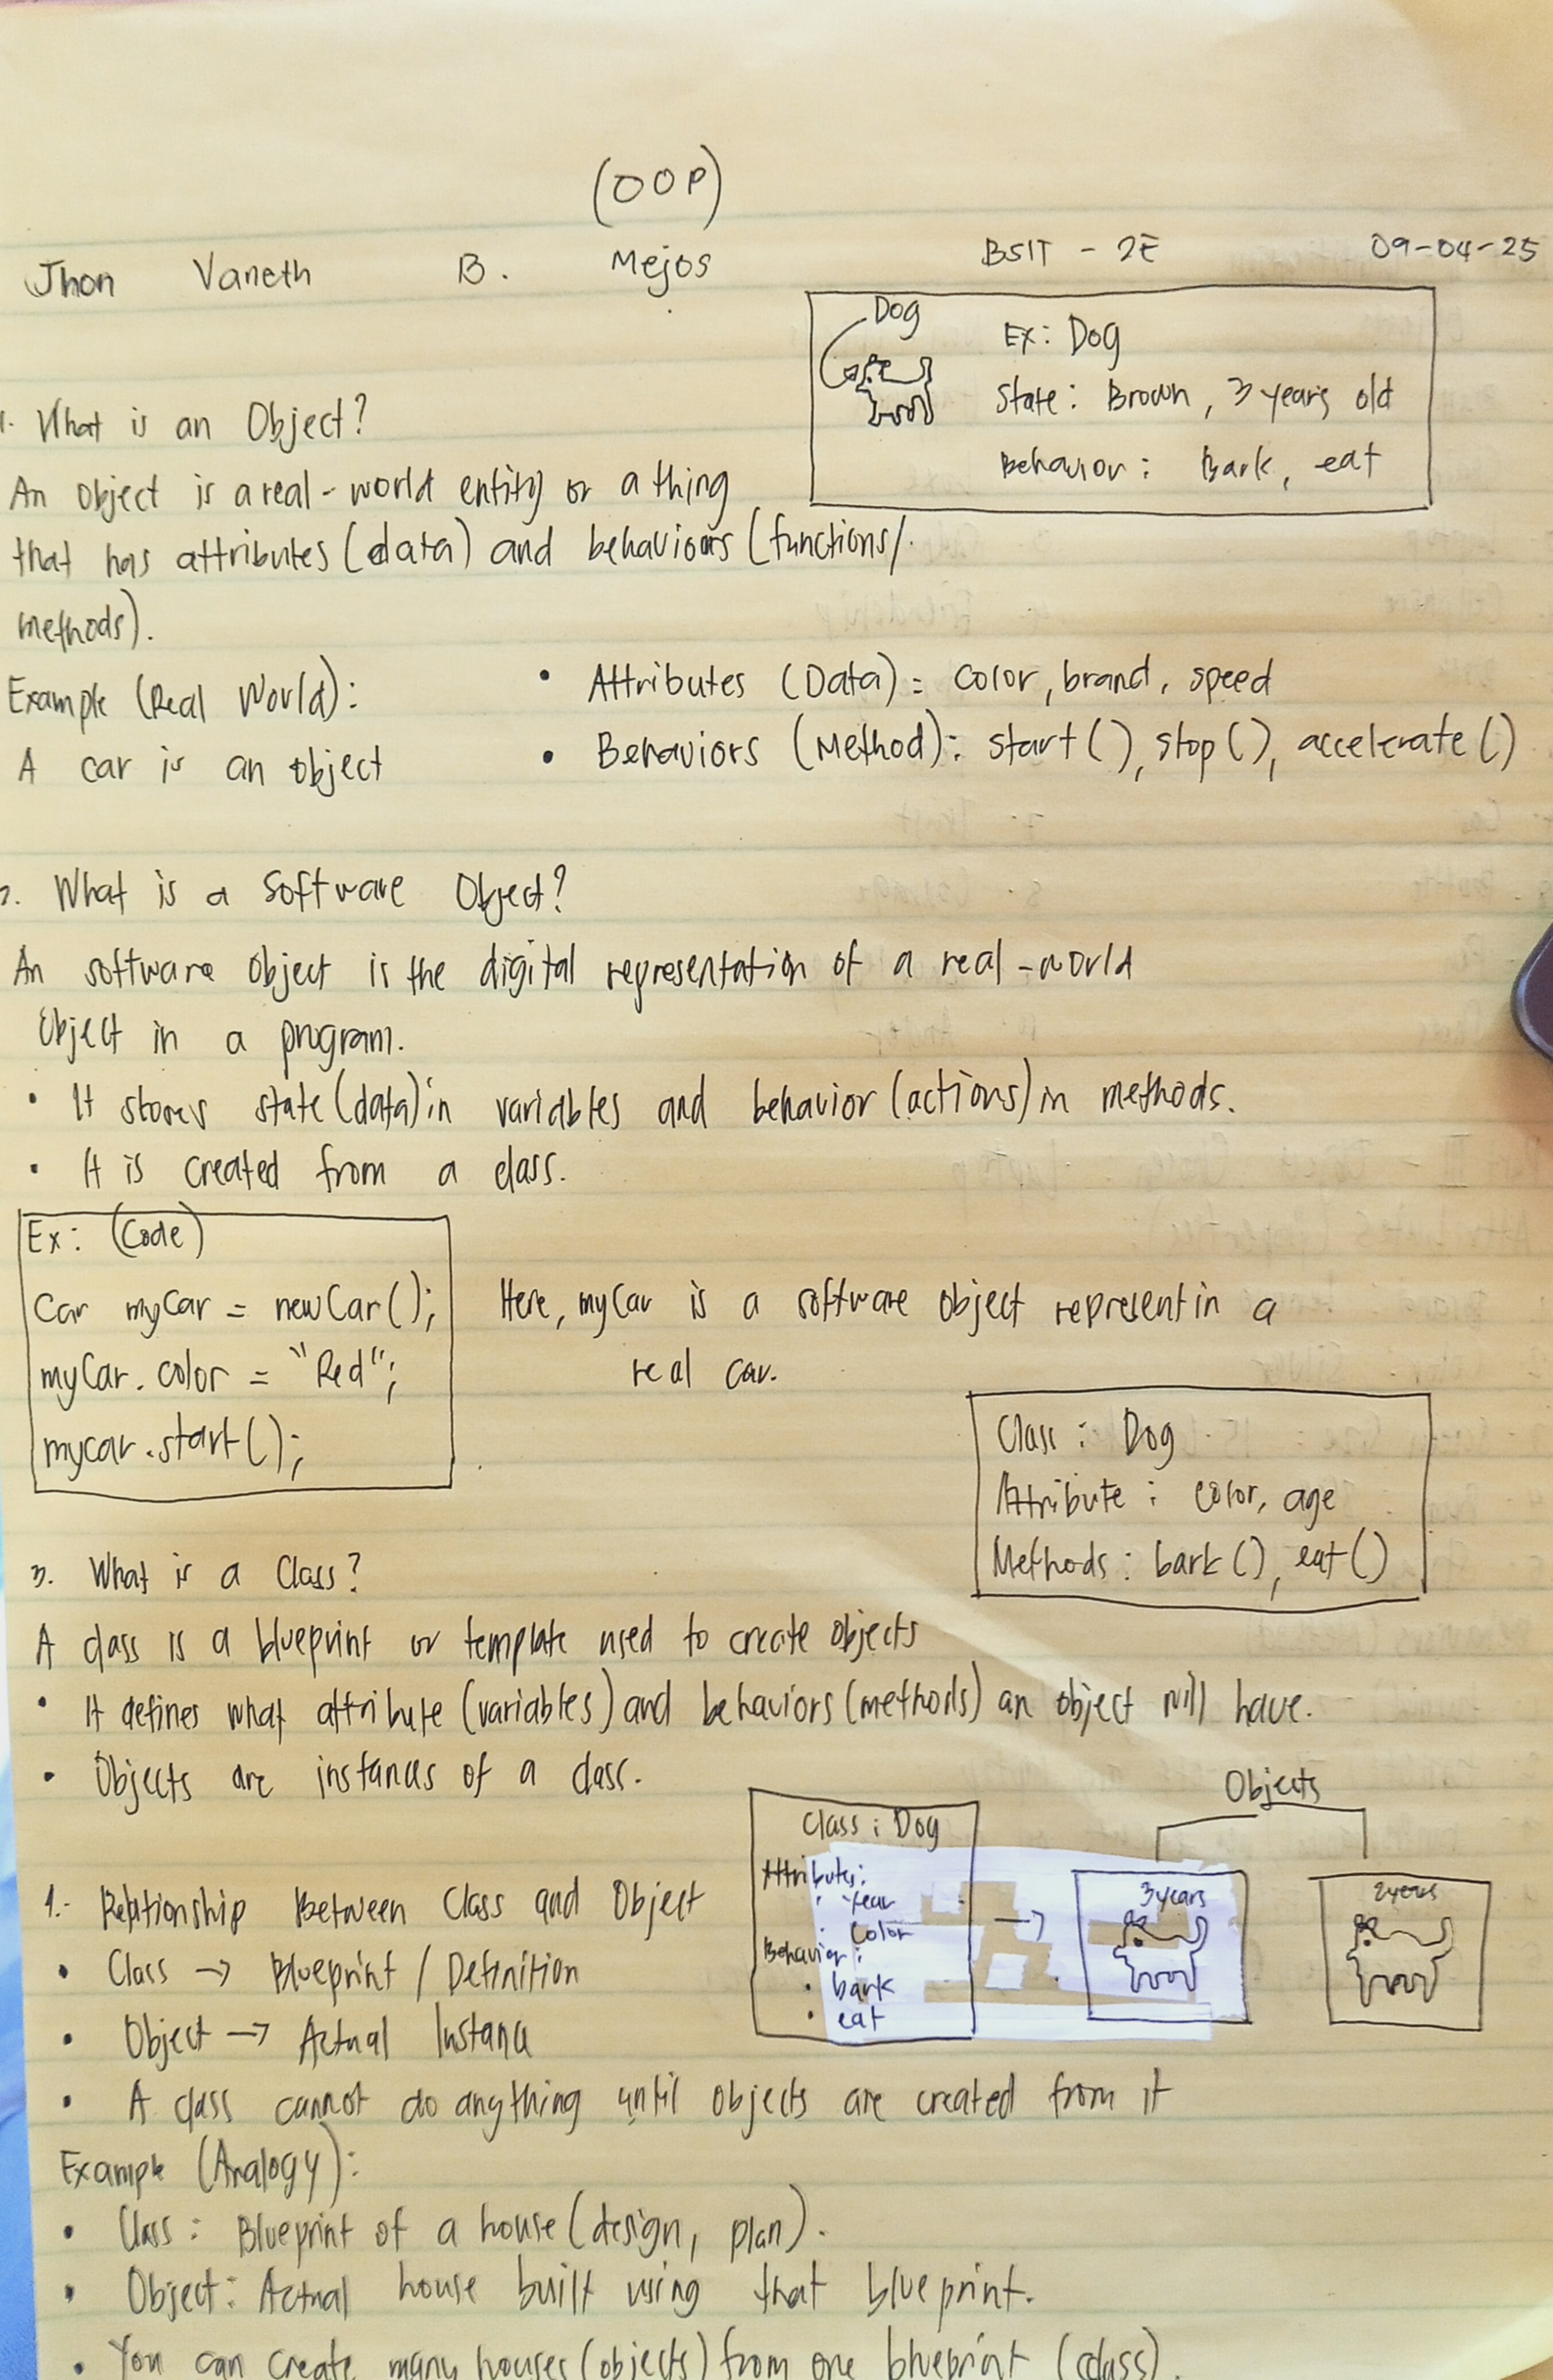 (OOP)
Jhon Vaneth B. Mejos BSIT - 2E 09-04-25
Dog
Ex: Dog
State: Brown, 3 years old
Behavior: Bark, eat
1. What is an Object?
An object is a real-world entity or a thing
that has attributes (data) and behaviors (functions/
methods).
Example (Real World):
A car is an object
• Attributes (Data): color, brand, speed
• Behaviors (Method): start(), stop(), accelerate()
2. What is a Software Object?
An software object is the digital representation of a real-world
Object in a program.
• It stores state (data) in variables and behavior (actions) in methods.
• It is created from a class.
Ex: (Code)
Car myCar = newCar();
myCar.color = "Red";
mycar.start();
Here, myCar is a software object represent in a
real car.
Class: Dog
Attribute: color, age
Methods: bark(), eat()
3. What is a Class?
A class is a blueprint or template used to create objects
• It defines what attribute (variables) and behaviors (methods) an object will have.
• Objects are instances of a class.
Objects
Class: Dog
Attributes:
• Year
• Color
Behavior:
• bark
• eat
→
3 years
2 years
1. Relationship Between Class and Object
• Class → Blueprint / Definition
• Object → Actual Instance
• A class cannot do anything until objects are created from it
Example (Analogy):
• Class: Blueprint of a house (design, plan).
• Object: Actual house built using that blueprint.
• You can create many houses (objects) from one blueprint (class).